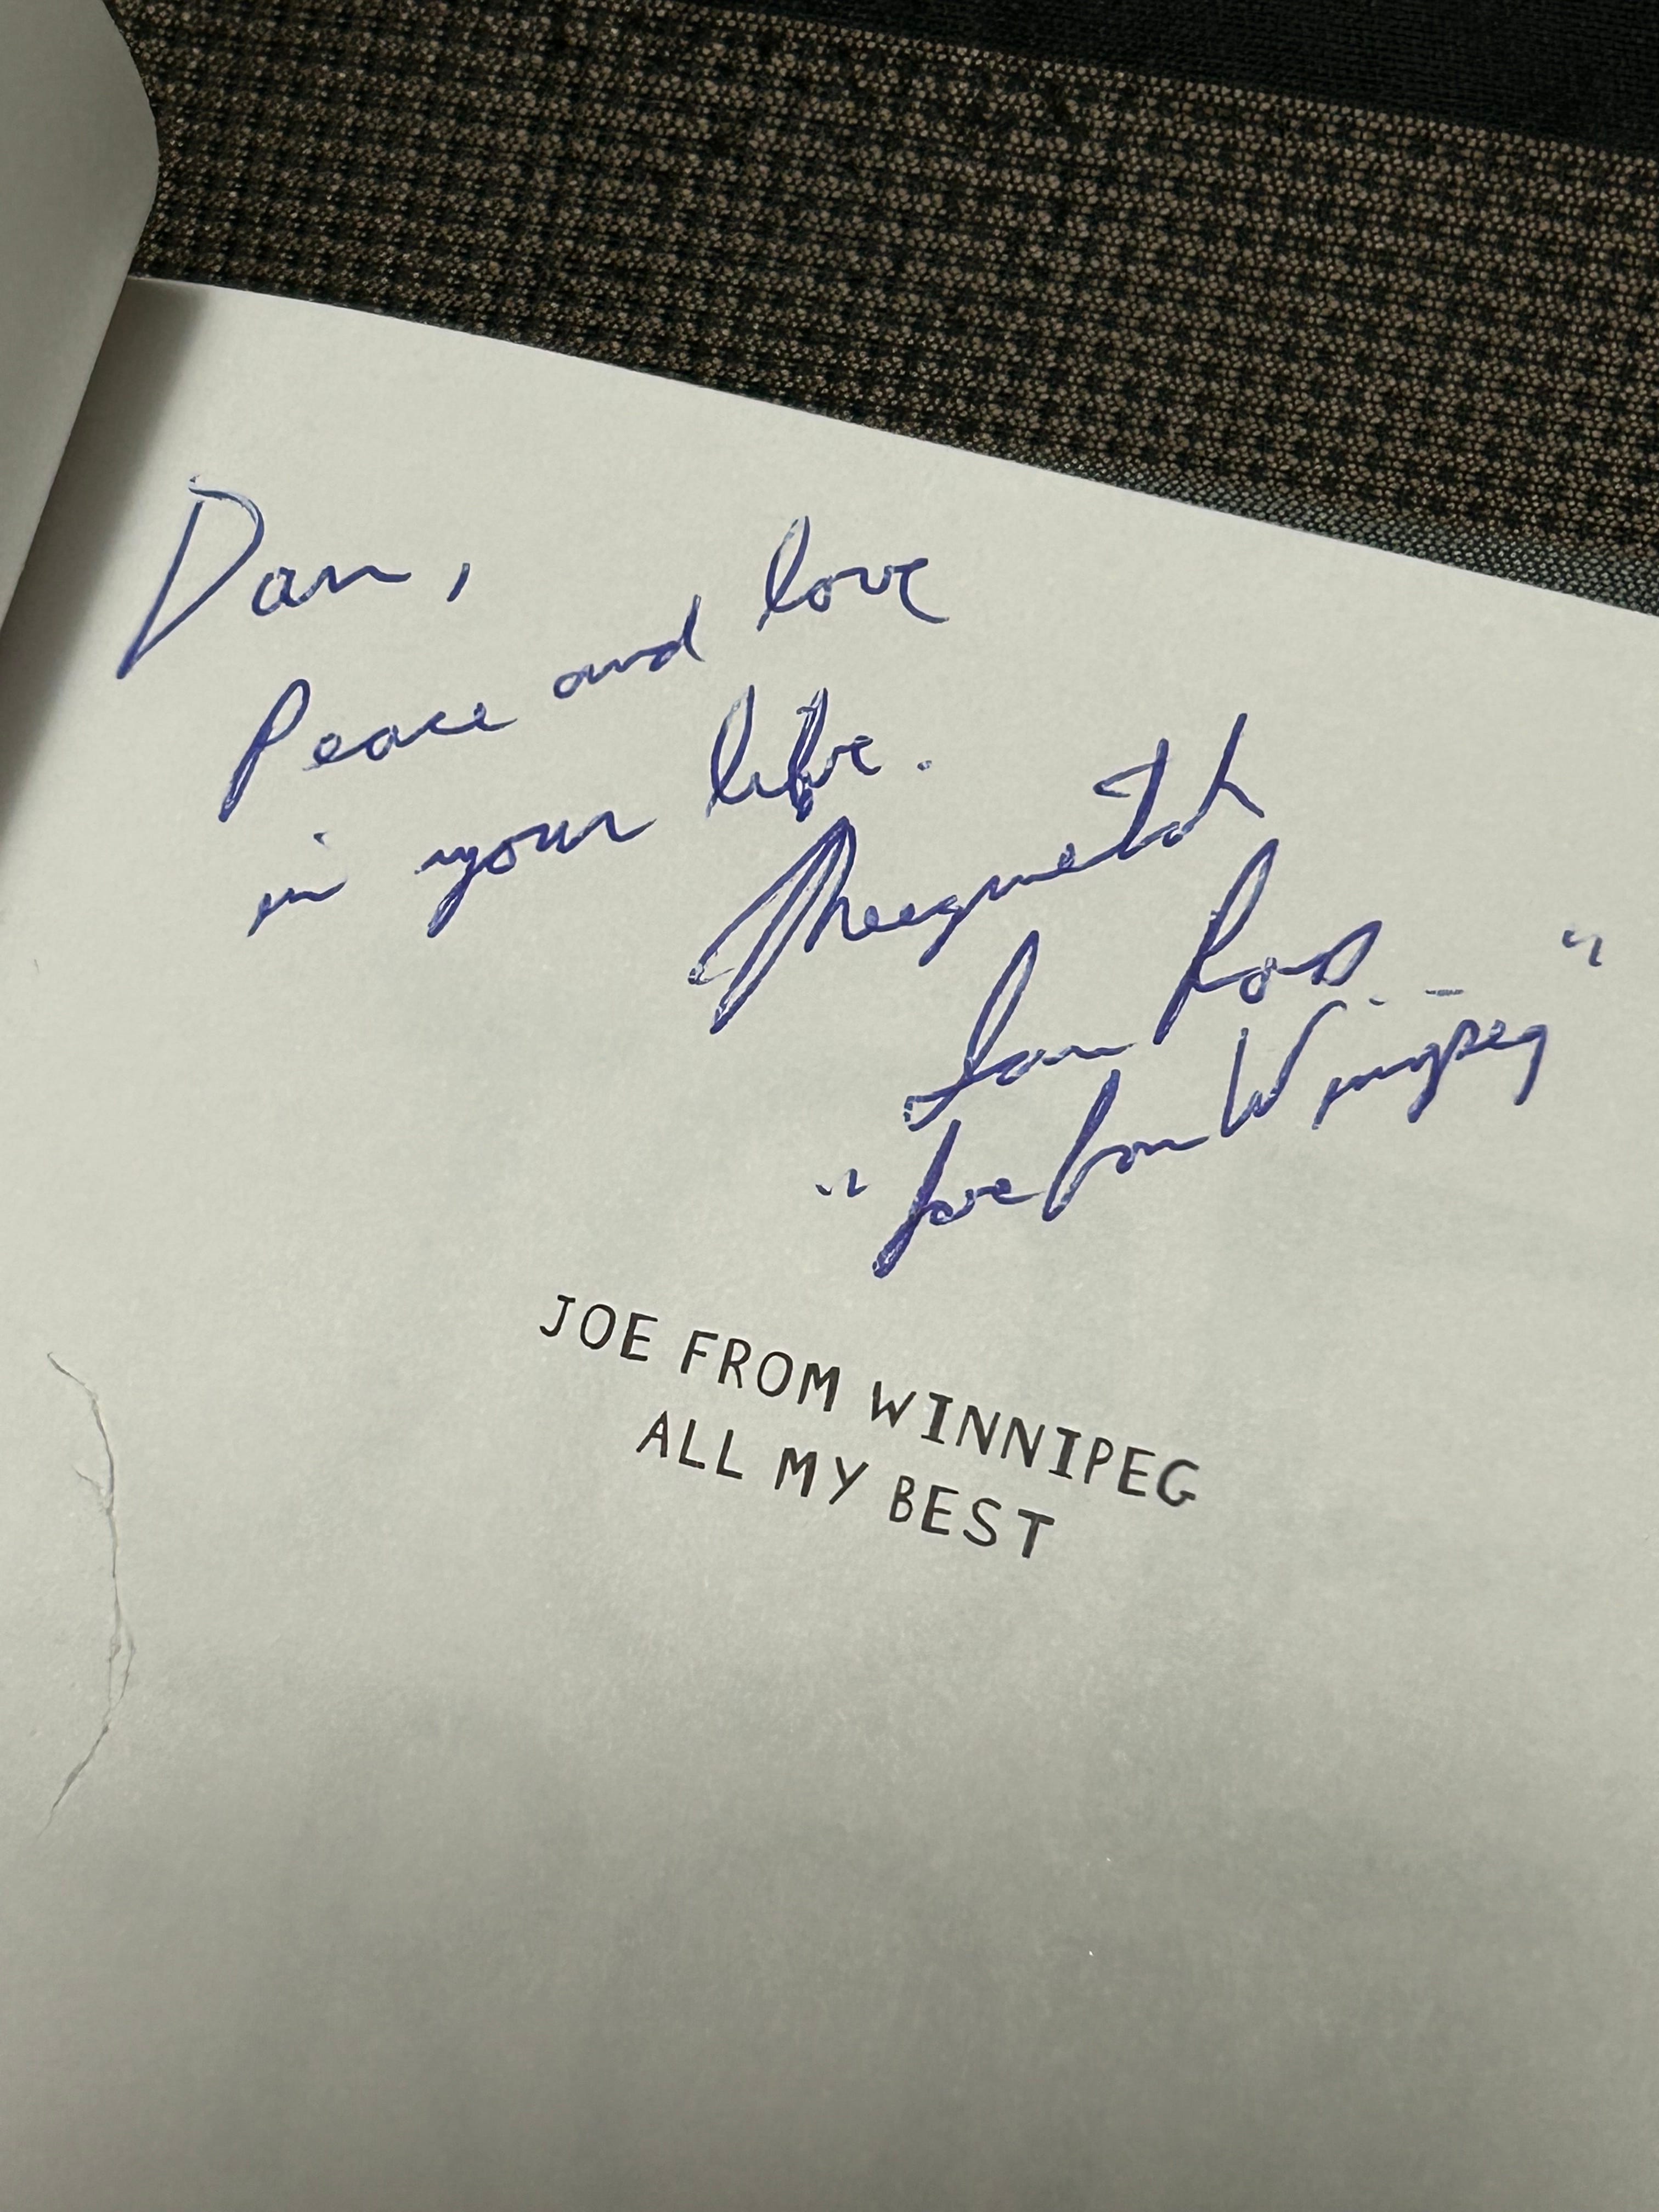 Dan,
Peace and love
in your life.
Meegwetch
Ian Ross
"Joe from Winnipeg"
JOE FROM WINNIPEG
ALL MY BEST